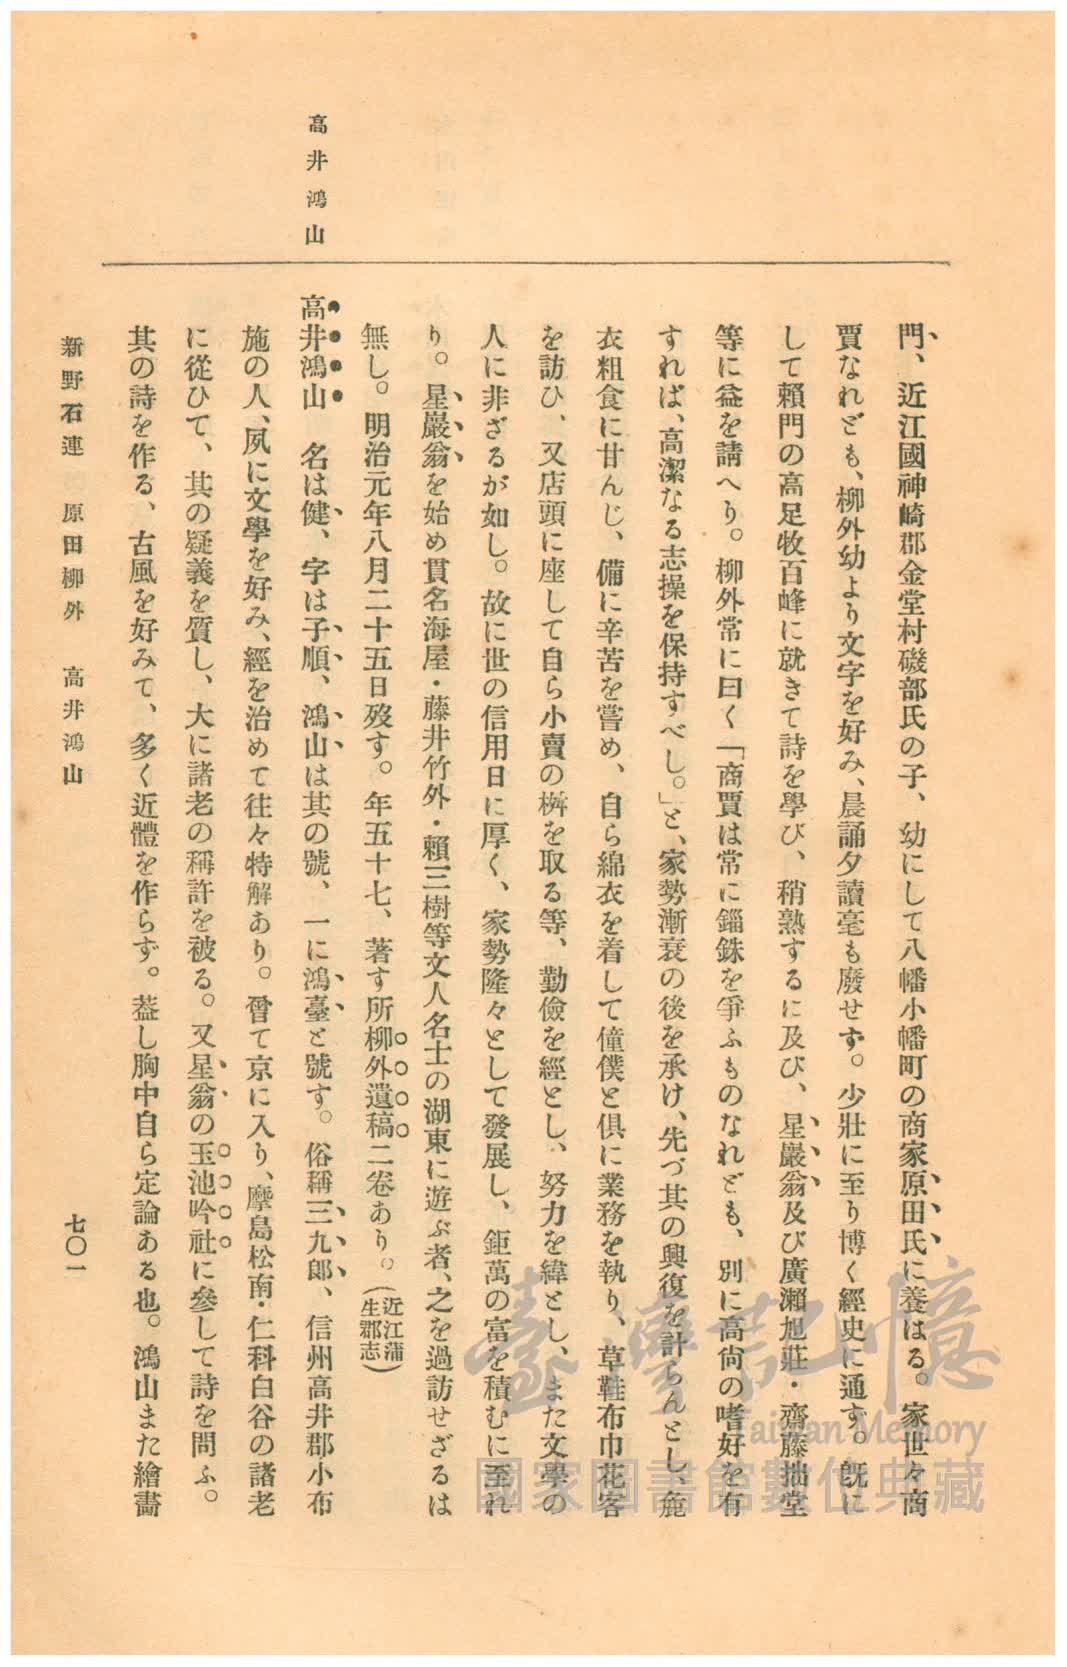 高井鴻山
門、近江國神崎郡金堂村磯部氏の子、幼にして八幡小幡町の商家原田氏に養はる。家世々商
賈なれども、柳外幼より文字を好み、晨誦夕讀毫も廢せず。少壯に至り博く經史に通す。既に
して賴門の高足牧百峰に就きて詩を學び、稍熟するに及び、星巖翁及び廣瀨旭莊・齋藤拙堂
等に益を請へり。柳外常に曰く「商賈は常に錙銖を爭ふものなれども、別に高尙の嗜好を有
すれば、高潔なる志操を保持すべし。」と、家勢漸衰の後を承け、先づ其の興復を計らんとし、麁
衣粗食に甘んじ、備に辛苦を嘗め、自ら綿衣を着して僮僕と俱に業務を執り、草鞋布巾花客
を訪ひ、又店頭に座して自ら小賣の桝を取る等、勤儉を經とし、努力を緯とし、また文學の
人に非ざるが如し。故に世の信用日に厚く、家勢隆々として發展し、鉅萬の富を積むに至れ
り。星巖翁を始め貫名海屋・藤井竹外・賴三樹等文人名士の湖東に遊ぶ者、之を過訪せざるは
無し。明治元年八月二十五日歿す。年五十七、著す所柳外遺稿二卷あり。(近江蒲生郡志)
高井鴻山　名は健、字は子順、鴻山は其の號、一に鴻臺と號す。俗稱三九郎、信州高井郡小布
施の人、夙に文學を好み、經を治めて往々特解あり。曾て京に入り、摩島松南・仁科白谷の諸老
に從ひて、其の疑義を質し、大に諸老の稱許を被る。又星翁の玉池吟社に參して詩を問ふ。
其の詩を作る、古風を好みて、多く近體を作らず。蓋し胸中自ら定論ある也。鴻山また繪畵
新野石連　原田柳外　高井鴻山
七〇一
臺灣記憶
Taiwan Memory
國家圖書館數位典藏